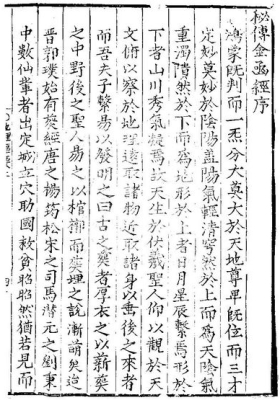 秘傳金函經序
鴻蒙旣判而一炁分大奠大於天地尊卑旣位而三才
定妙莫妙於陰陽盖陽氣輕清穹然於上而為天陰氣
重濁隤然於下而為地形於上者日月星辰繫焉形於
下者山川秀氣凝焉故天生於伏羲聖人仰以觀於天
文俯以察於地理遠取諸物近取諸身以垂後之來者
而吾夫子繫易以發明之曰古之塟者厚衣之以薪塟
之中野後之聖人易之以棺槨而塟埋之說漸萌矣迨
晋郭璞始有塟經唐之楊筠松宋之司馬潜元之劉秉
中數仙軰者出定城立穴助國救貧昭昭然猶若見而